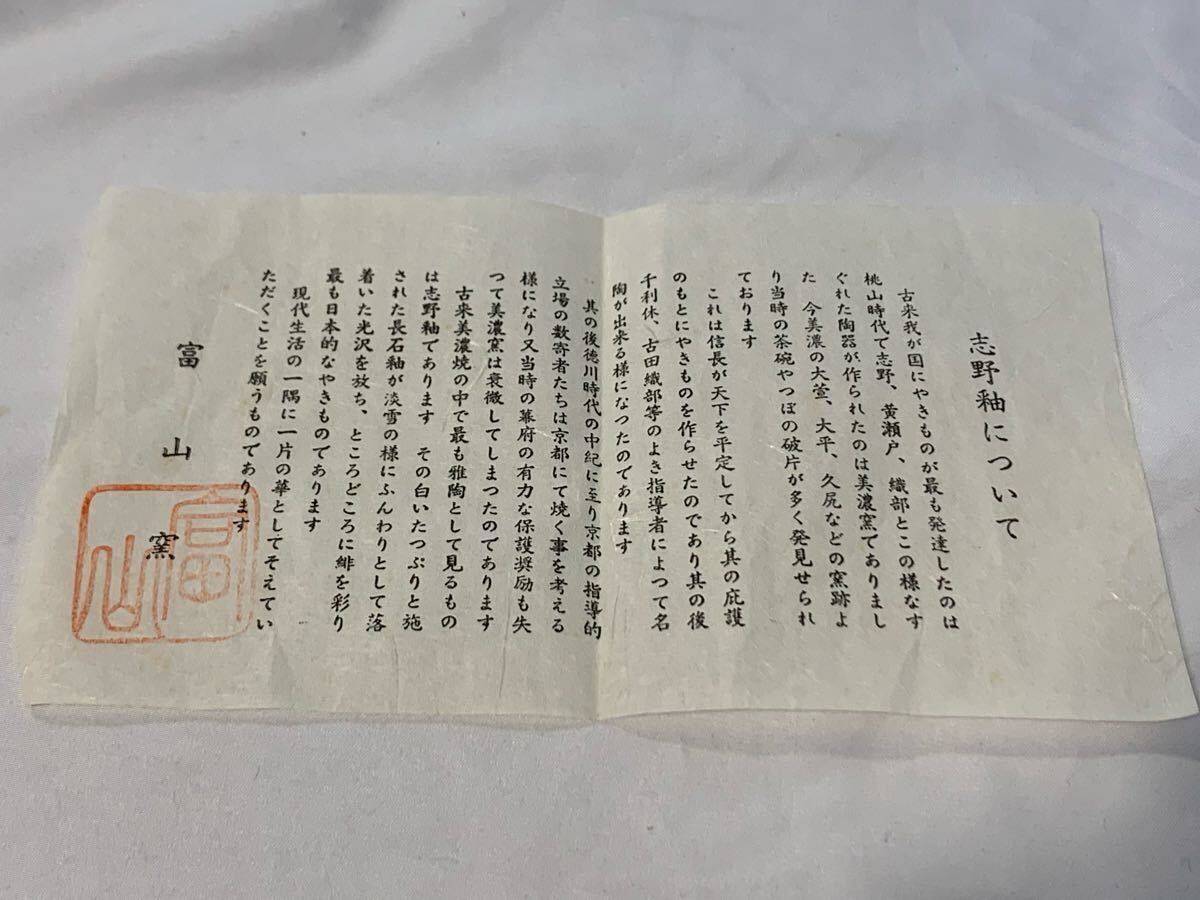 志野釉について
古来我が国にやきものが最も発達したのは
桃山時代で志野、黄瀬戸、織部とこの様なす
ぐれた陶器が作られたのは美濃窯でありまし
た　今美濃の大萱、大平、久尻などの窯跡よ
り当時の茶碗やつぼの破片が多く発見せられ
ております
これは信長が天下を平定してから其の庇護
のもとにやきものを作らせたのであり其の後
千利休、古田織部等のよき指導者によつて名
陶が出来る様になつたのであります
其の後徳川時代の中紀に至り京都の指導的
立場の数寄者たちは京都にて焼く事を考える
様になり又当時の幕府の有力な保護奨励も失
つて美濃窯は衰微してしまつたのであります
古来美濃焼の中で最も雅陶として見るもの
は志野釉であります　その白いたつぷりと施
された長石釉が淡雪の様にふんわりとして落
着いた光沢を放ち、ところどころに緋を彩り
最も日本的なやきものであります
現代生活の一隅に一片の華としてそえてい
ただくことを願うものであります
富山窯
富山